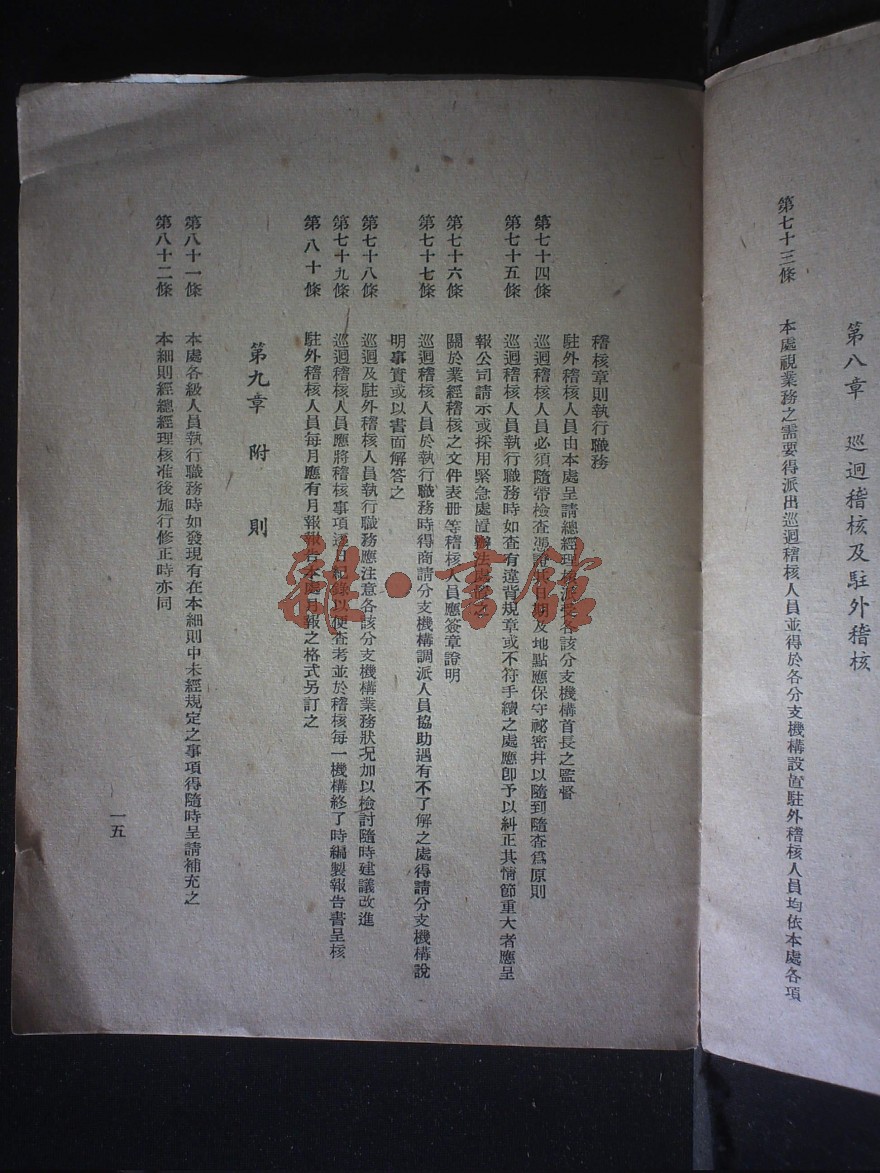 第八章　巡迴稽核及駐外稽核
第七十三條　本處視業務之需要得派出巡迴稽核人員並得於各分支機構設置駐外稽核人員均依本處各項
稽核章則執行職務
駐外稽核人員由本處呈請總經理核派受各該分支機構首長之監督
第七十四條　巡迴稽核人員必須隨帶檢查憑證其日期及地點應保守祕密幷以隨到隨查爲原則
第七十五條　巡迴稽核人員執行職務時如查有違背規章或不符手續之處應卽予以糾正其情節重大者應呈
報公司請示或採用緊急處置辦法處置之
第七十六條　關於業經稽核之文件表冊等稽核人員應簽章證明
第七十七條　巡迴稽核人員於執行職務時得商請分支機構調派人員協助遇有不了解之處得請分支機構說
明事實或以書面解答之
第七十八條　巡迴及駐外稽核人員執行職務應注意各該分支機構業務狀況加以檢討隨時建議改進
第七十九條　巡迴稽核人員應將稽核事項逐日紀錄以便查考並於稽核每一機構終了時編製報告書呈核
第八十條　駐外稽核人員每月應有月報報告本處月報之格式另訂之
第九章　附　則
第八十一條　本處各級人員執行職務時如發現有在本細則中未經規定之事項得隨時呈請補充之
第八十二條　本細則經總經理核准後施行修正時亦同
一五
雜·書館